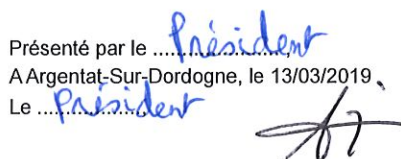 Présenté par le ...Président...,
A Argentat-Sur-Dordogne, le 13/03/2019
Le ...Président...